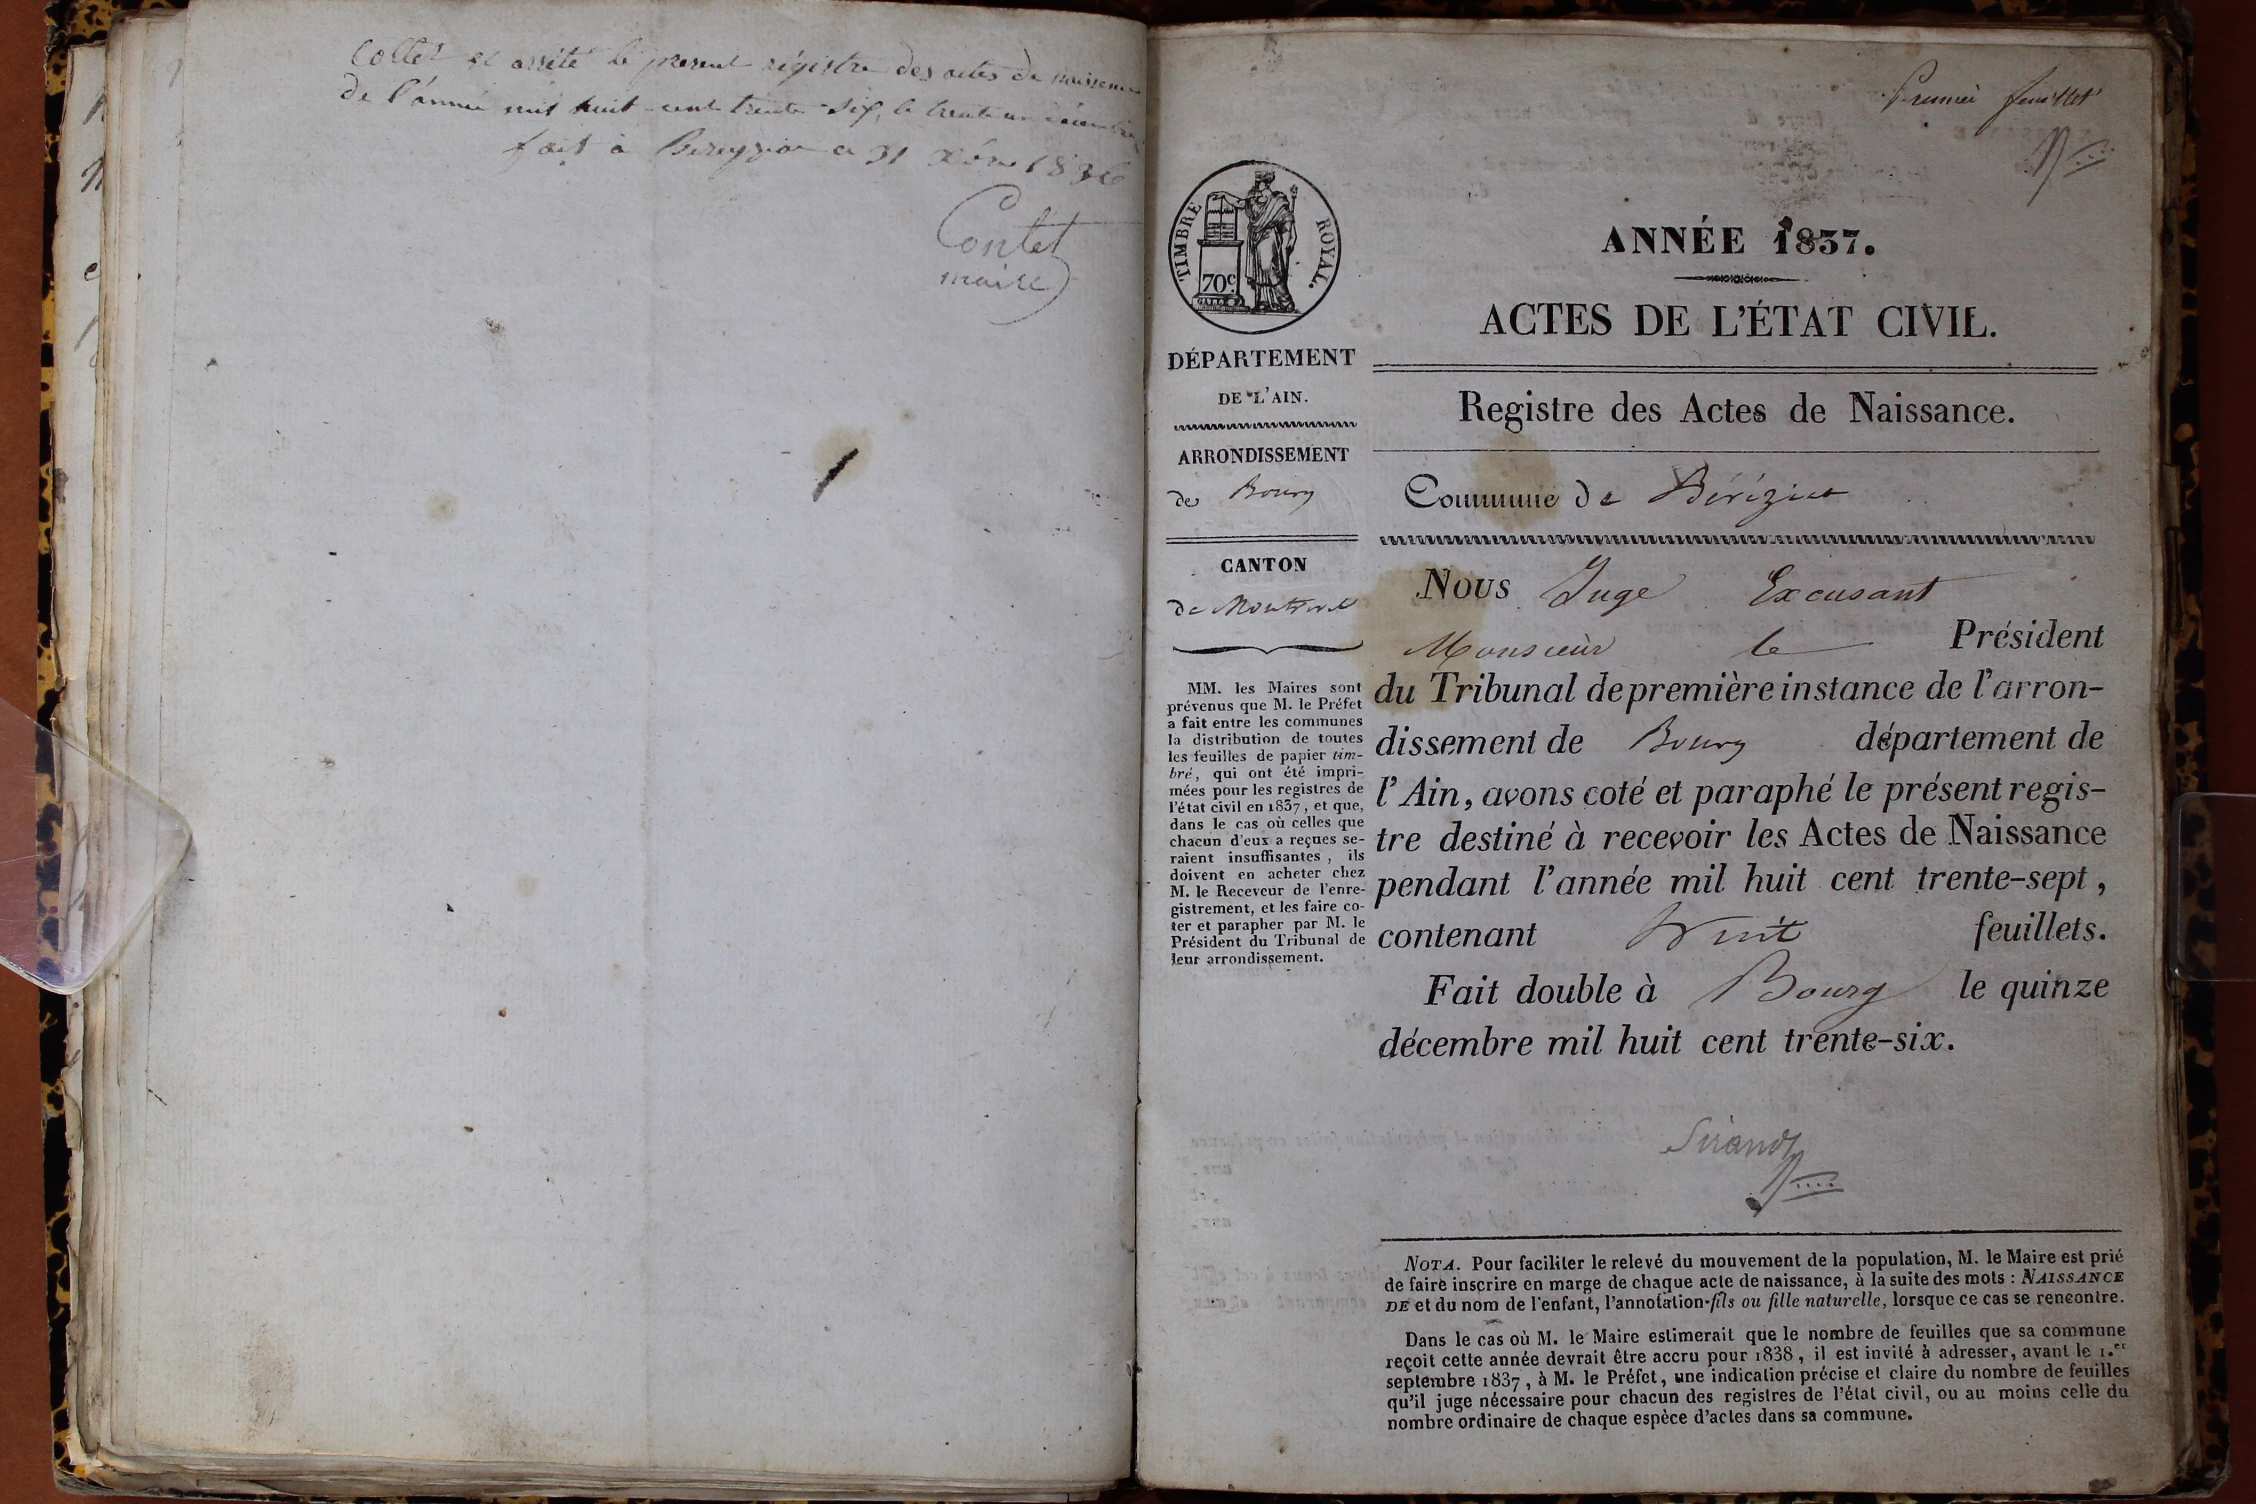 et arrêté le present régistre des actes de naissance
de l'année mil huit cent trente six, le trente un décembre
fait à ce 31 Xbre 1836
Contet
maire
Premier feuillet
TIMBRE ROYAL.
70c
ANNÉE 1837.
ACTES DE L'ÉTAT CIVIL.
DÉPARTEMENT
DE L'AIN.
ARRONDISSEMENT
de Bourg
CANTON
de Montrevel
MM. les Maires sont
prévenus que M. le Préfet
a fait entre les communes
la distribution de toutes
les feuilles de papier tim-
bré, qui ont été impri-
mées pour les registres de
l'état civil en 1837, et que,
dans le cas où celles que
chacun d'eux a reçues se-
raient insuffisantes, ils
doivent en acheter chez
M. le Receveur de l'enre-
gistrement, et les faire co-
ter et parapher par M. le
Président du Tribunal de
leur arrondissement.
Registre des Actes de Naissance.
Commune de Béréziat
Nous Juge Excusant
Monsieur le Président
du Tribunal de première instance de l'arron-
dissement de Bourg département de
l'Ain, avons coté et paraphé le présent regis-
tre destiné à recevoir les Actes de Naissance
pendant l'année mil huit cent trente-sept,
contenant huit feuillets.
Fait double à Bourg le quinze
décembre mil huit cent trente-six.
Sirand
NOTA. Pour faciliter le relevé du mouvement de la population, M. le Maire est prié
de faire inscrire en marge de chaque acte de naissance, à la suite des mots : NAISSANCE
DE et du nom de l'enfant, l'annotation fils ou fille naturelle, lorsque ce cas se rencontre.
Dans le cas où M. le Maire estimerait que le nombre de feuilles que sa commune
reçoit cette année devrait être accru pour 1838, il est invité à adresser, avant le 1.er
septembre 1837, à M. le Préfet, une indication précise et claire du nombre de feuilles
qu'il juge nécessaire pour chacun des registres de l'état civil, ou au moins celle du
nombre ordinaire de chaque espèce d'actes dans sa commune.